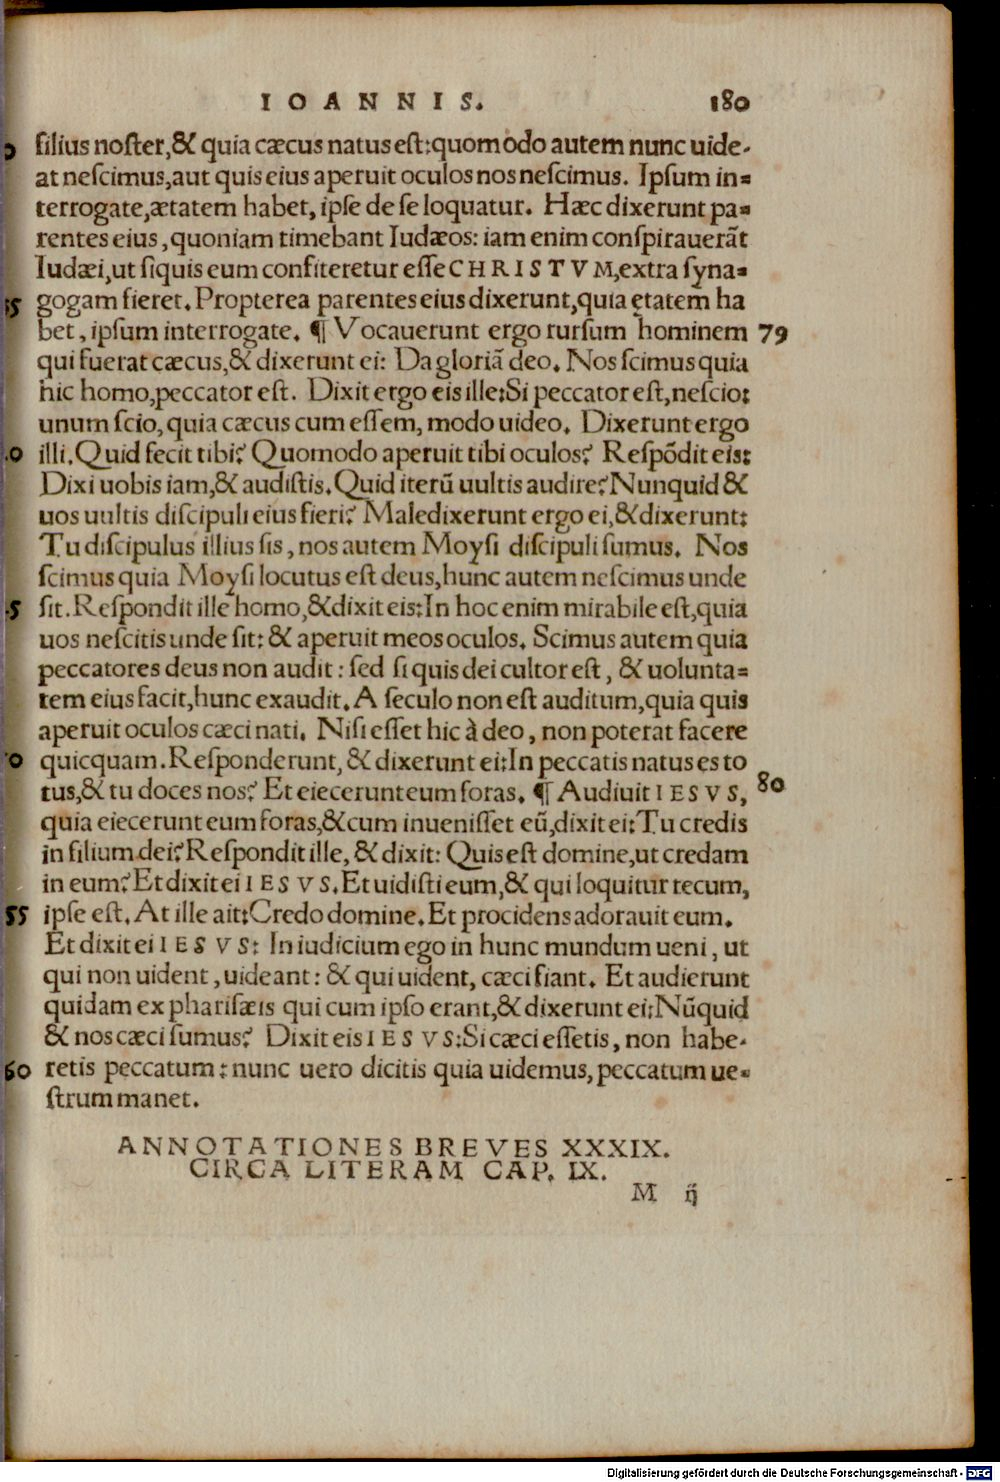 IOANNIS. 180
filius noſter,& quia cæcus natus eſt:quomodo autem nunc uide-
at neſcimus,aut quis eius aperuit oculos nos neſcimus. Ipſum in=
terrogate,ætatem habet, ipſe de ſe loquatur. Hæc dixerunt pa=
rentes eius, quoniam timebant Iudæos: iam enim conſpirauerãt
Iudæi,ut ſiquis eum confiteretur eſſe CHRISTVM,extra ſyna=
35 gogam fieret. Propterea parentes eius dixerunt,quia ętatem ha
bet, ipſum interrogate. ¶ Vocauerunt ergo rurſum hominem 79
qui fuerat cæcus,& dixerunt ei: Da gloriã deo. Nos ſcimus quia
hic homo,peccator eſt. Dixit ergo eis ille:Si peccator eſt,neſcio:
unum ſcio, quia cæcus cum eſſem, modo uideo. Dixerunt ergo
.0 illi.Quid fecit tibi? Quomodo aperuit tibi oculos? Reſpõdit eis:
Dixi uobis iam,& audiſtis.Quid iterũ uultis audire?Nunquid &
uos uultis diſcipuli eius fieri? Maledixerunt ergo ei,& dixerunt:
Tu diſcipulus illius ſis, nos autem Moyſi diſcipuli ſumus. Nos
ſcimus quia Moyſi locutus eſt deus,hunc autem neſcimus unde
.5 ſit.Reſpondit ille homo,& dixit eis:In hoc enim mirabile eſt,quia
uos neſcitis unde ſit: & aperuit meos oculos. Scimus autem quia
peccatores deus non audit: ſed ſi quis dei cultor eſt, & uolunta=
tem eius facit,hunc exaudit. A ſeculo non eſt auditum,quia quis
aperuit oculos cæci nati. Niſi eſſet hic à deo, non poterat facere
0 quicquam. Reſponderunt, & dixerunt ei:In peccatis natus es to
tus,& tu doces nos? Et eiecerunt eum foras. ¶ Audiuit IESVS, 80
quia eiecerunt eum foras,& cum inueniſſet eũ,dixit ei:Tu credis
in filium dei?Reſpondit ille, & dixit: Quis eſt domine,ut credam
in eum?Et dixit ei IESVS.Et uidiſti eum,& qui loquitur tecum,
55 ipſe eſt. At ille ait:Credo domine.Et procidens adorauit eum.
Et dixit ei IESVS: In iudicium ego in hunc mundum ueni, ut
qui non uident, uideant: & qui uident, cæci fiant. Et audierunt
quidam ex phariſæis qui cum ipſo erant,& dixerunt ei:Nũquid
& nos cæci ſumus? Dixit eis IESVS:Si cæci eſſetis, non habe-
60 retis peccatum: nunc uero dicitis quia uidemus,peccatum ue=
ſtrum manet.
ANNOTATIONES BREVES XXXIX.
CIRCA LITERAM CAP. IX.
M ij
Digitalisierung gefördert durch die Deutsche Forschungsgemeinschaft - DFG